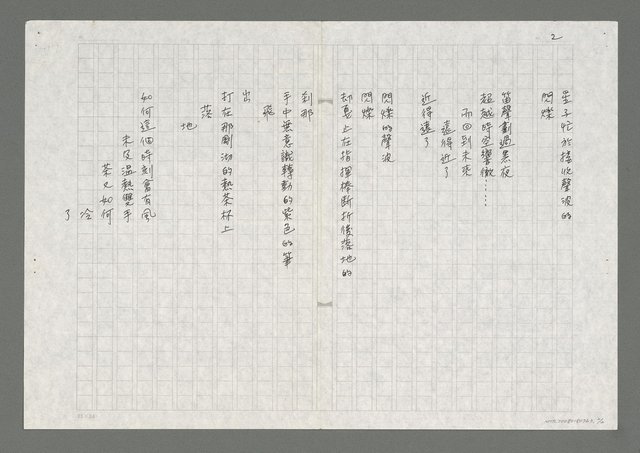 2
星子忙於接收聲波的
閃爍
笛聲劃過黑夜
超越時空響徹……
而回到未來
遠得近了
近得遠了
閃爍的聲波
閃爍
却戞止在指揮棒斷折後落地的
刹那
手中無意識轉動的紫色的筆
飛
出
打在那剛沏的熱茶杯上
落
地
如何這個時刻會有風
未及溫熱雙手
茶又如何
冷
了